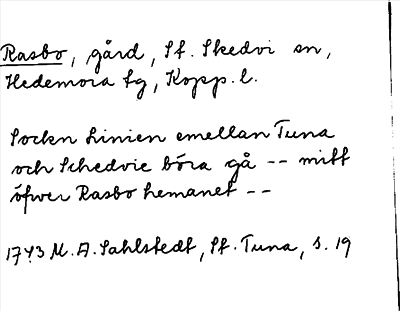 Rasbo, gård, St. Skedvi sn,
Hedemora tg, Kopp. l.
Sockn Linien emellan Tuna
och Schedvie böra gå -- mitt
öfwer Rasbo hemanet --
1743 M. A. Sahlstedt, St. Tuna, s. 19